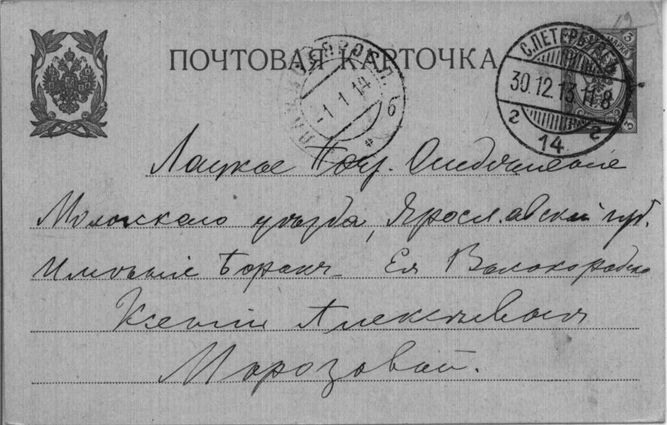 ПОЧТОВАЯ КАРТОЧКА
С.ПЕТЕРБУРГЪ
30.12.13.11-8
14
-1.1.14
Лацкое Поч. Отделение
Мологскаго уѣзда, Ярославской губ.
имѣніе Борокъ Ея Высокородію
Ксеніи Алексѣевнѣ
Морозовой.